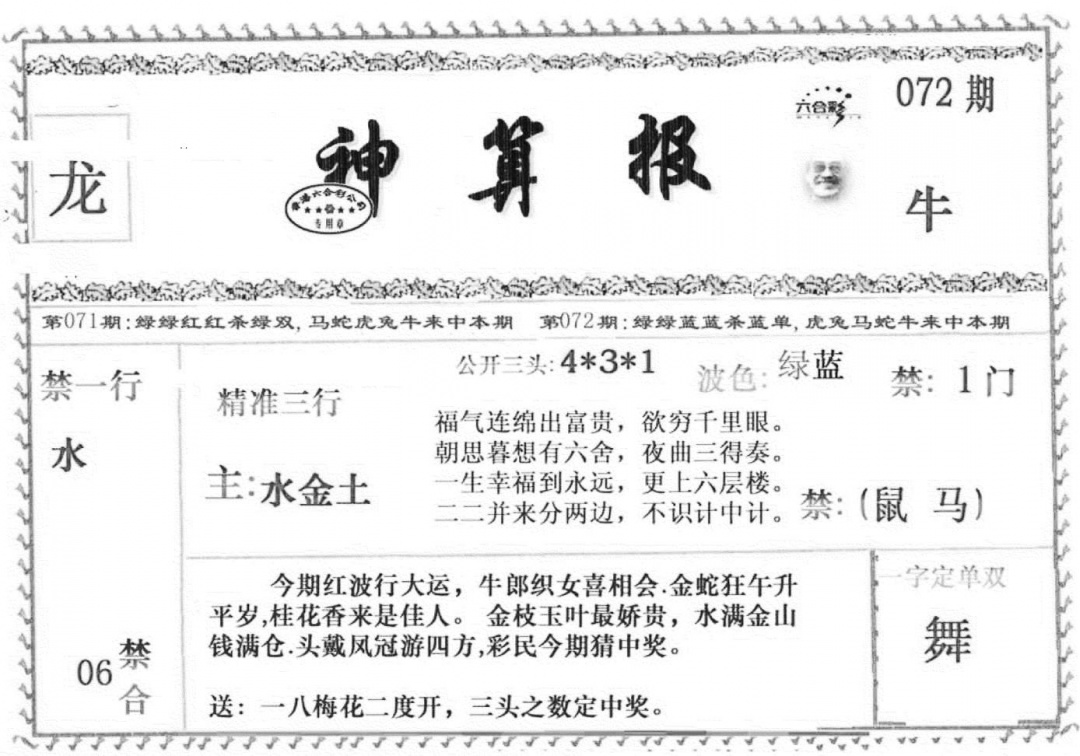 六合彩
072期
龙
神算报
香港六合彩公司
专用章
牛
第071期:绿绿红红杀绿双,马蛇虎兔牛来中本期 第072期:绿绿蓝蓝杀蓝单,虎兔马蛇牛来中本期
禁一行
水
06
禁
合
精准三行
主:水金土
公开三头:4*3*1
波色:绿蓝
禁:1门
福气连绵出富贵，欲穷千里眼。
朝思暮想有六舍，夜曲三得奏。
一生幸福到永远，更上六层楼。
二二并来分两边，不识计中计。
禁:(鼠 马)
今期红波行大运，牛郎织女喜相会.金蛇狂午升
平岁,桂花香来是佳人。金枝玉叶最娇贵，水满金山
钱满仓.头戴凤冠游四方,彩民今期猜中奖。
送：一八梅花二度开，三头之数定中奖。
一字定单双
舞